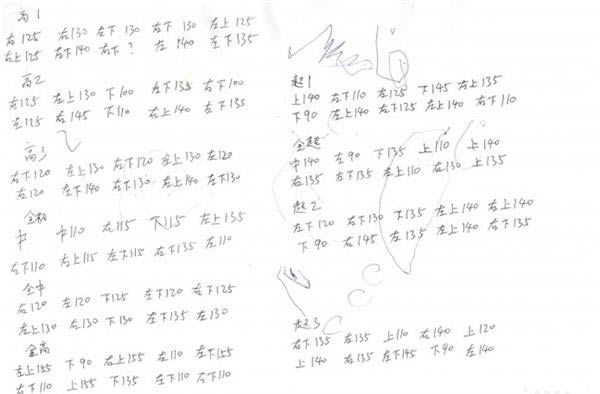 高1
右125 右130 左下130 右下130 左上125
右上125 右下140 右下? 左140 左下135
高2
右125 左上130 下100 左下135 右下100
左125 右145 下110 右上140 左下135
高3
右下120 左上130 右下120 左上130 左120
右120 左下140 右下130 右上140 左下130
全初
中 中110 右115 下115 左上135
右下110 右上115 左下115 右下135 左110
全中
右120 左120 下125 左下120 右下125
左上130 右130 下130 左下135 左130
全高
左上155 下90 右上155 左110 左下155
右下110 上155 下135 左下110 右下110
超1
上140 右下110 左125 下145 右上135
下90 左上140 右下125 左上140 右下110
全超
中140 左90 下135 上110 上140
右135 左下135 左上110 右130 上135
超2
左下120 右下130 下135 左上140 右上140
下90 右145 左135 左上140 右下135
超3
右下135 左135 上110 右140 上120
上140 右135 左下145 下90 左140